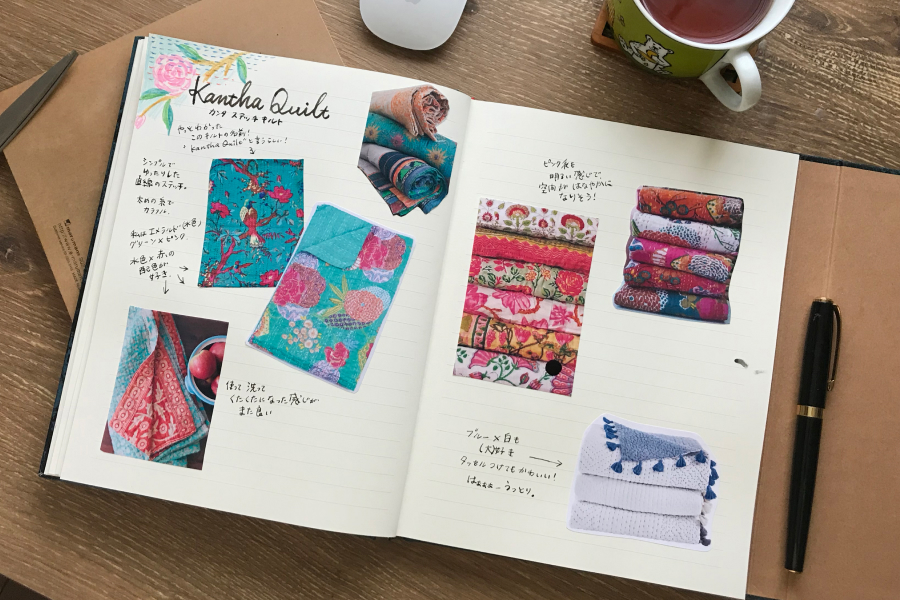 Kantha Quilt
カンタ ステッチ キルト
やっとわかった
このキルトの名前!
"Kantha Quilt" と言うらしい!
シンプルで
ゆったりした
直線のステッチ。
太めの糸で
カラフル.
私は エメラルド(水色)
グリーン×ピンク.
水色×赤の
配色が
好き.
使って 洗って
くたくたになった感じが
また良い
ピンク系も
明るい感じで、
空間が はなやかに
なりそう!
ブルー×白も
大好き
タッセルつけてもかわいい!
はぁぁぁ~うっとり。